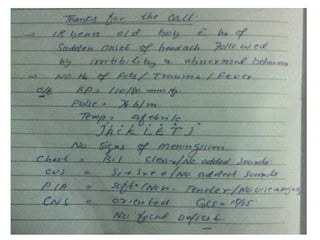 Thanks for the call.
→ 18 years old boy c̄ Hx of
Sudden onset of headach followed
by irritibility & abnormal behaviour
→ No Hx of Fits / Trauma / Fever
O/E BP = 110/80 mmHg
Pulse = 76 b/m
Temp = Afebrile
J A C K L E T J
No Signs of meningism
Chest = B/L Clear / No added sounds
CVS = S1 + S2 + 0 / No added sounds
P/A = Soft / Non-Tender / No visceromegaly
CNS = oriented GCS = 15/15
No focal Deficit.